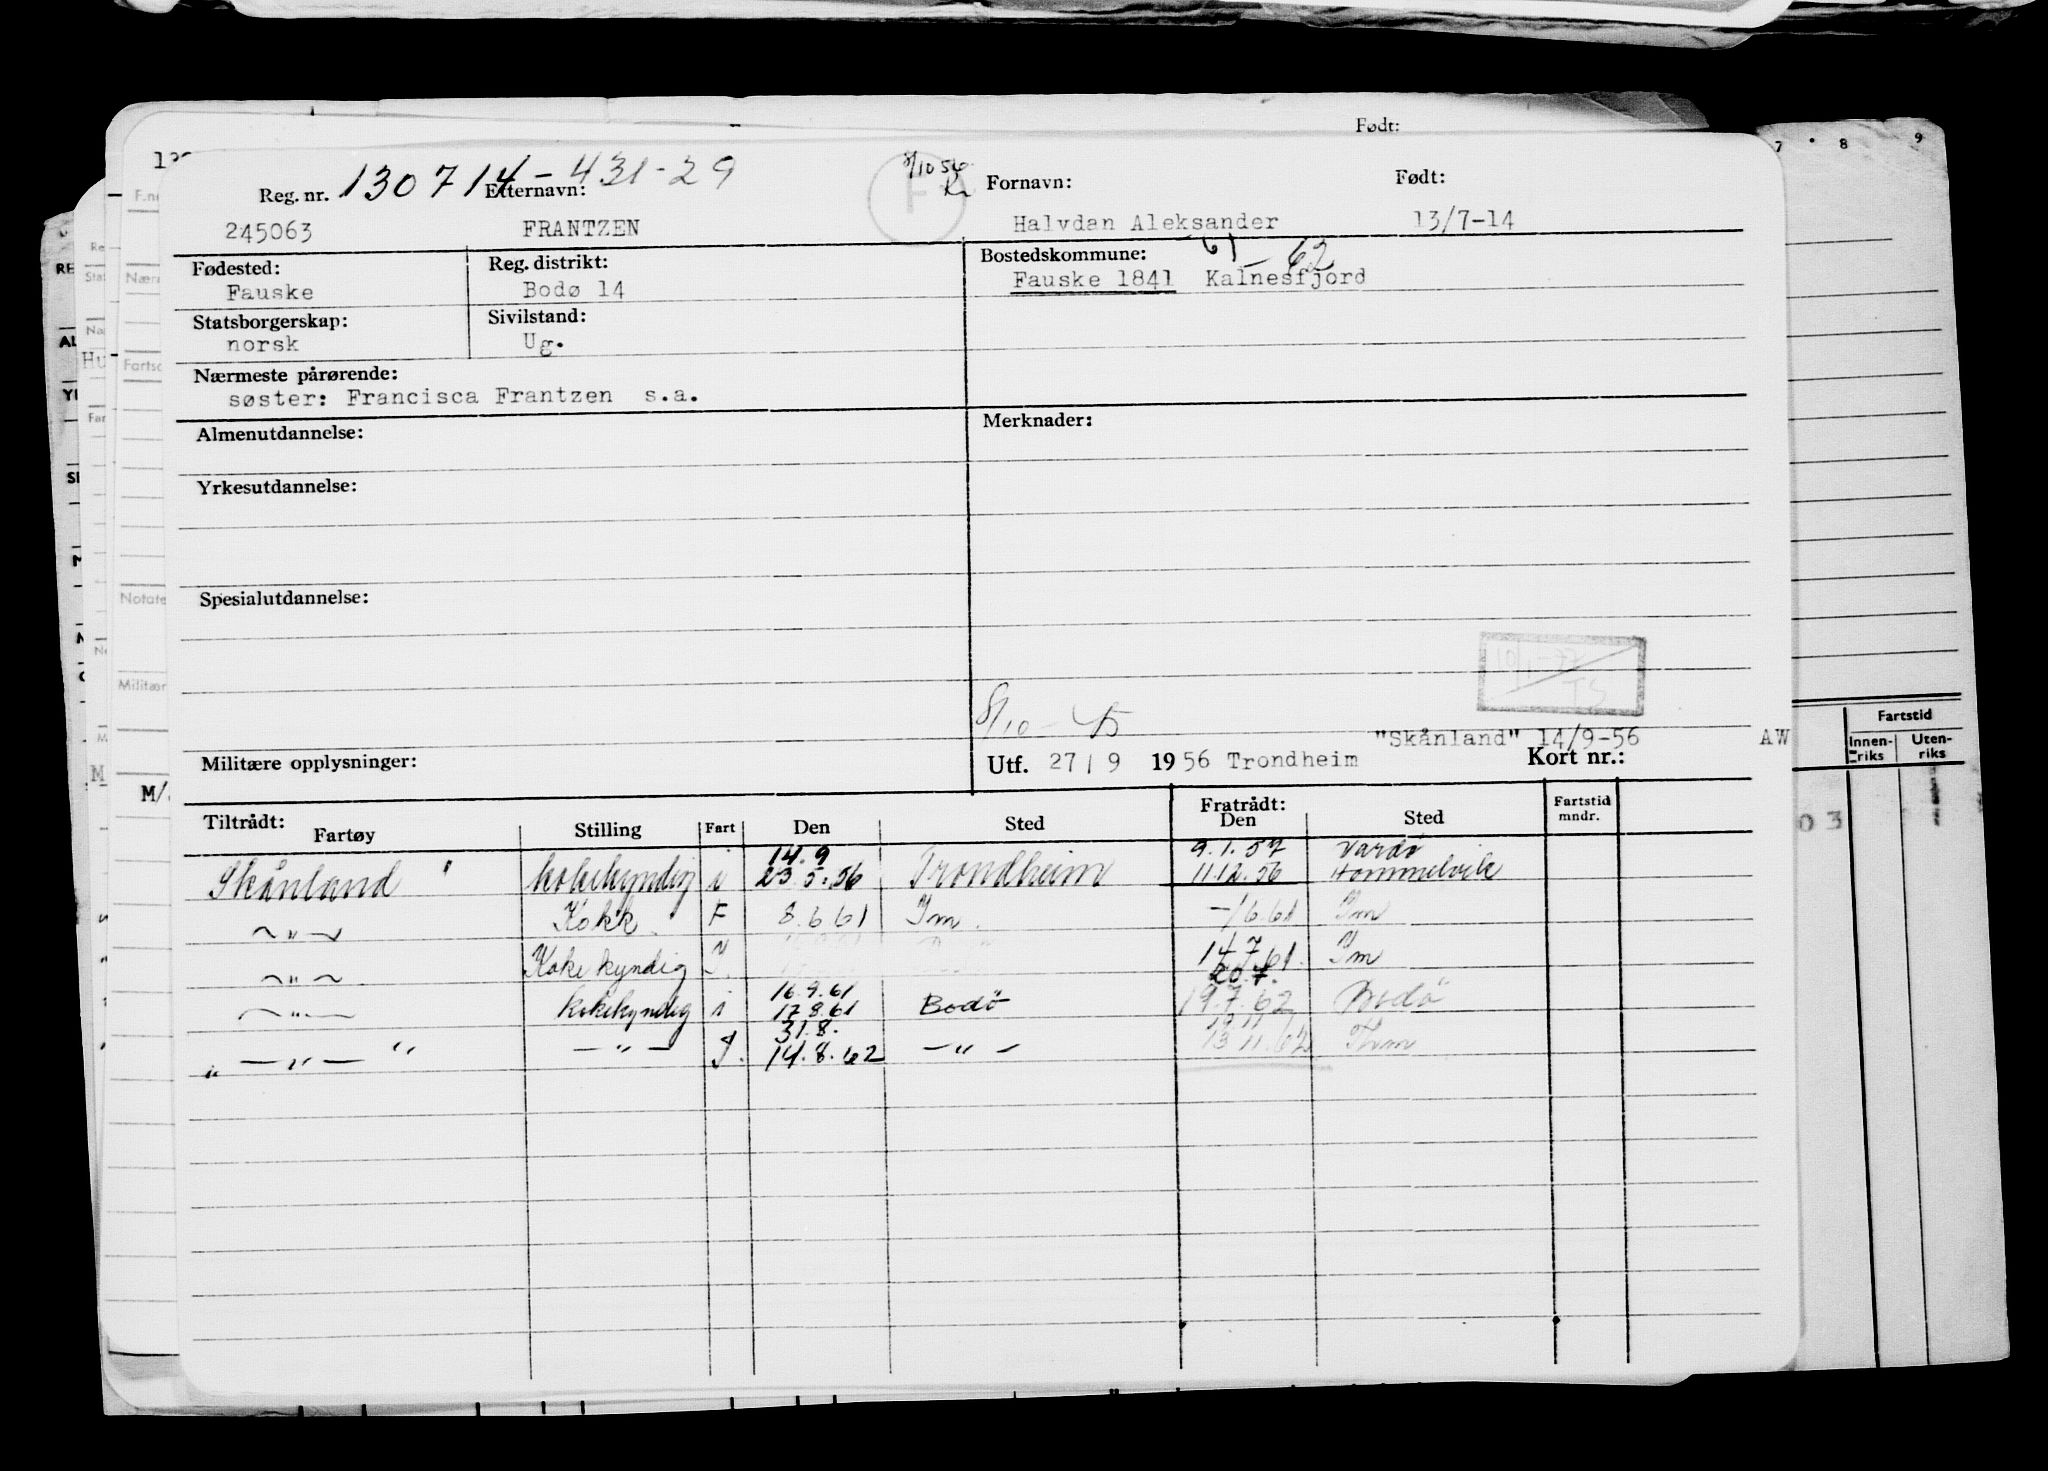 Født:
7 8 9
Reg. nr. 130714-431-29 Etternavn: 8/10 56 Fornavn: Født:
245063 FRANTZEN F Halvdan Aleksander 13/7-14
Fødested: Reg. distrikt: Bostedskommune: 61 - 62
Fauske Bodø 14 Fauske 1841 Kalnesfjord
Statsborgerskap: Sivilstand:
norsk Ug.
Nærmeste pårørende:
søster: Francisca Frantzen s.a.
Almenutdannelse: Merknader:
Yrkesutdannelse:
Spesialutdannelse:
TS
8/10
"Skånland" 14/9-56 AW
Militære opplysninger: Utf. 27/9 1956 Trondheim Kort nr.:
Fartstid
Innenriks Utenriks
Tiltrådt: Fratrådt:
Fartøy Stilling Fart Den Sted Den Sted Fartstid mndr.
14.9 9.1.57 Vardø
Skånland " kokekyndig i 23.5.56 Trondheim 11.12.56 Hommelvik
—"— Kokk F 8.6.61 Tm. -/6.61 Tm
—"— Koke kyndig 14.7.61. Tm
16.9.61 20.7.
—"— kokekyndig i 17.8.61 Bodø 19.7.62 Bodø
31.8.
" —"— " —"— I. 14.8.62 —"— 13.11.62 Thm
03